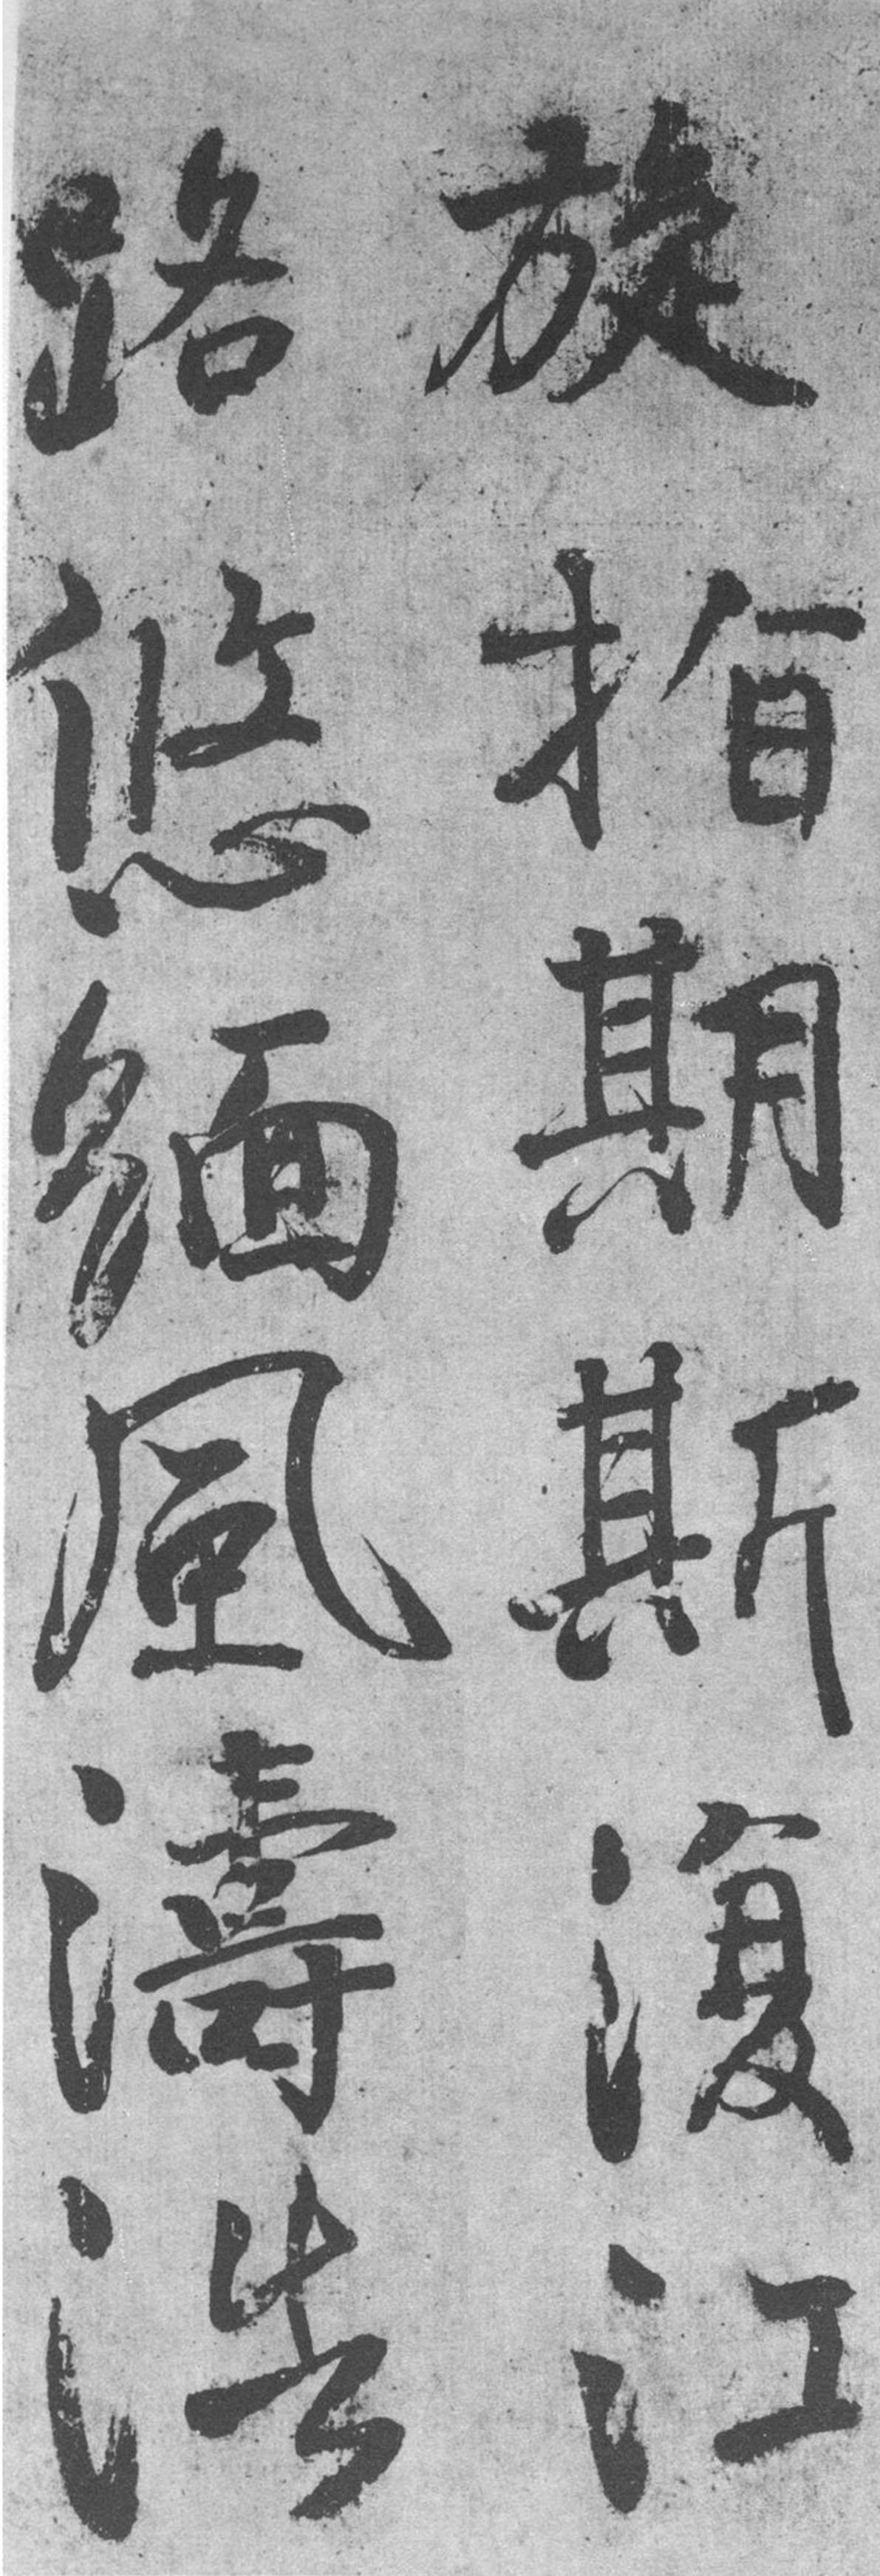 旋指期斯復江
路悠緬風濤浩